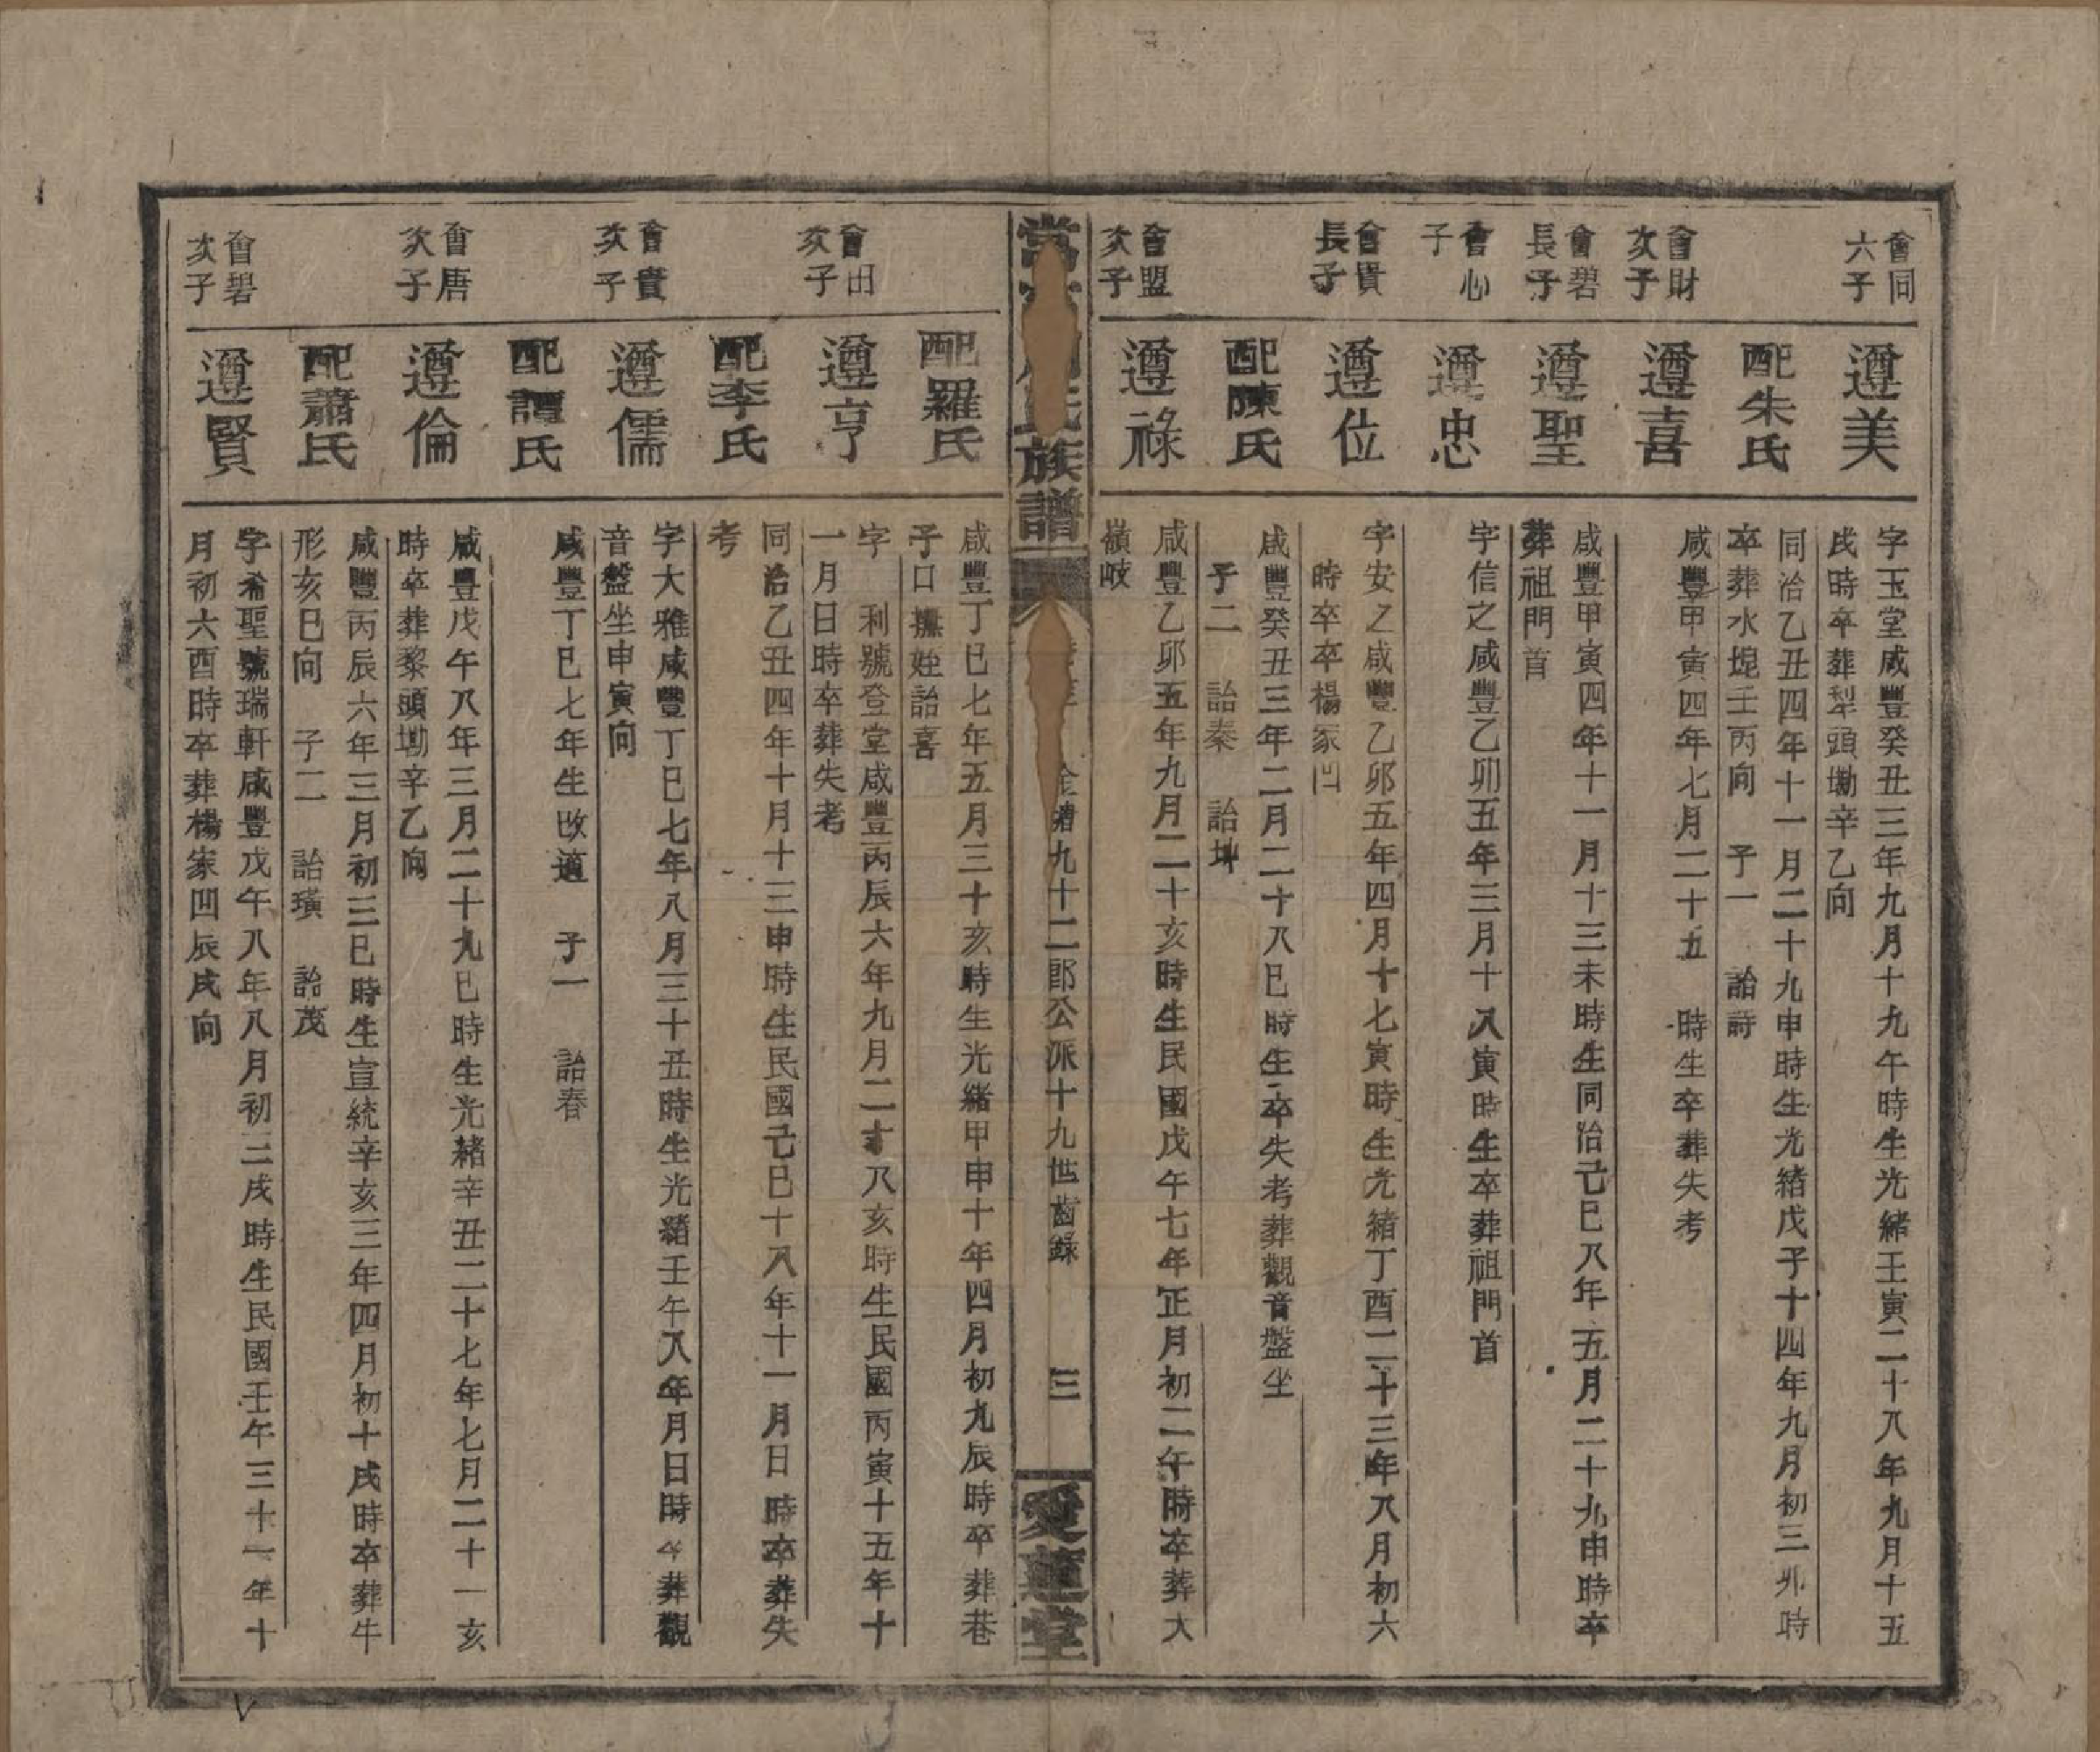 會同
六子
遵美
字玉堂咸豐癸丑三年九月十九午時生光緒壬寅二十八年九月十五
戌時卒葬犁頭坳辛乙向
配朱氏
同治乙丑四年十一月二十九申時生光緒戊子十四年九月初三卯時
卒葬水堄壬丙向 子一 詒詩
會財
次子
遵喜
咸豐甲寅四年七月二十五 時生卒葬失考
會碧
長子
遵聖
咸豐甲寅四年十一月十三未時生同治己巳八年五月二十九申時卒
葬祖門首
會心
子
遵忠
字信之咸豐乙卯五年三月十八寅時生卒葬祖門首
會貴
長子
遵位
字安之咸豐乙卯五年四月十七寅時生光緒丁酉二十三年八月初六
時卒卒楊家凹
配陳氏
咸豐癸丑三年二月二十八巳時生卒失考葬觀音盤坐
子二 詒秦 詒坤
會盟
次子
遵祿
咸豐乙卯五年九月二十亥時生民國戊午七年正月初二午時卒葬大
嶺岐
氏族譜
九十二郎公派十九世齒錄
三
愛蓮堂
配羅氏
咸豐丁巳七年五月三十亥時生光緒甲申十年四月初九辰時卒葬巷
子口撫姪詒喜
會田
次子
遵亨
字 利號登堂咸豐丙辰六年九月二十八亥時生民國丙寅十五年十
一月日時卒葬失考
配李氏
同治乙丑四年十月十三申時生民國己巳十八年十一月日時卒葬失
考
會貴
次子
遵儒
字大雅咸豐丁巳七年八月三十丑時生光緒壬午八年月日時卒葬觀
音盤坐申寅向
配譚氏
咸豐丁巳七年生改適 子一 詒春
會唐
次子
遵倫
咸豐戊午八年三月二十九巳時生光緒辛丑二十七年七月二十一亥
時卒葬黎頭坳辛乙向
配蕭氏
咸豐丙辰六年三月初三巳時生宣統辛亥三年四月初十戌時卒葬牛
形亥巳向 子二 詒璜 詒茂
會碧
次子
遵賢
字希聖號瑞軒咸豐戊午八年八月初三戌時生民國壬午三十一年十
月初六酉時卒葬楊家凹辰戌向